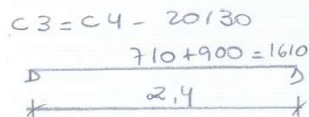 C3 = C4 - 20/30
710+900=1610
2,4